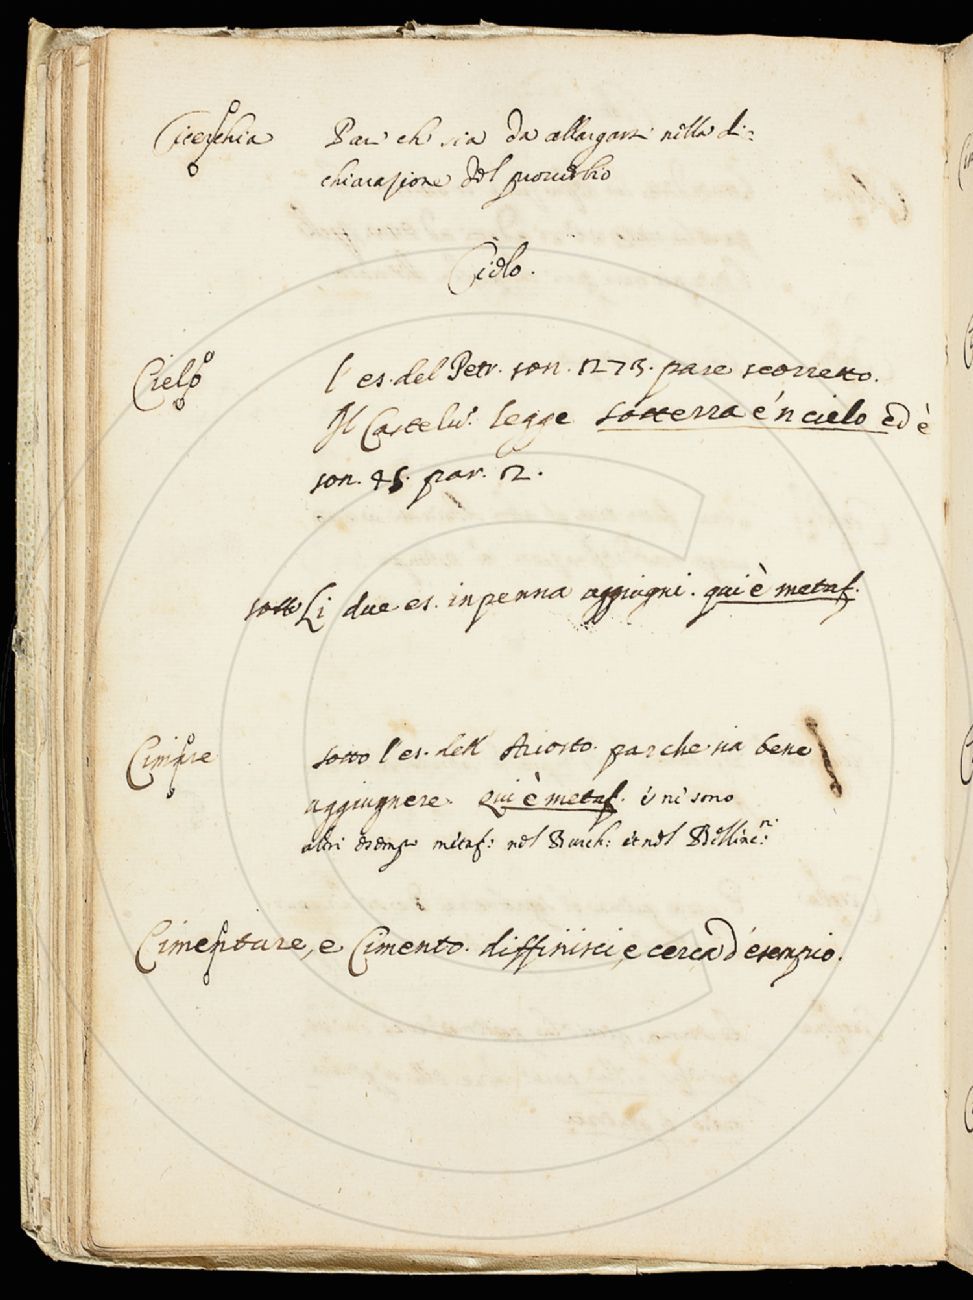 Cicerchia Par che sia da allargare nella di-
chiarazione del proverbio
Cielo.
Cielo l'es. del Petr. son. 1273. pare scorretto.
Il Castelv. legge sotterra e 'n cielo ed è
son. 45. par. 2.
sotto Li due es. in penna aggiugni. qui è metaf.
sotto l'es. dell' Ariosto. par che sia bene
aggiugnere. Qui è metaf. e ne sono
altri esempi metaf: nel Burch: et nel Bellinc:ni
Cimentare, e Cimento. diffinisci, e cerca d'esempio.